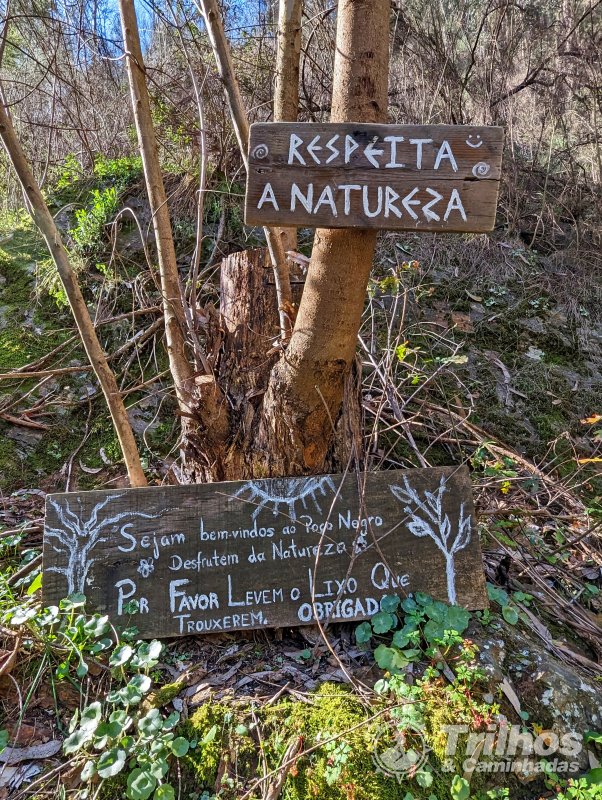 RESPEITA
A NATUREZA
Sejam bem-vindos ao Poço Negro
Desfrutem da Natureza
Por Favor Levem o Lixo Que
Trouxerem. OBRIGADA
Trilhos
& Caminhadas